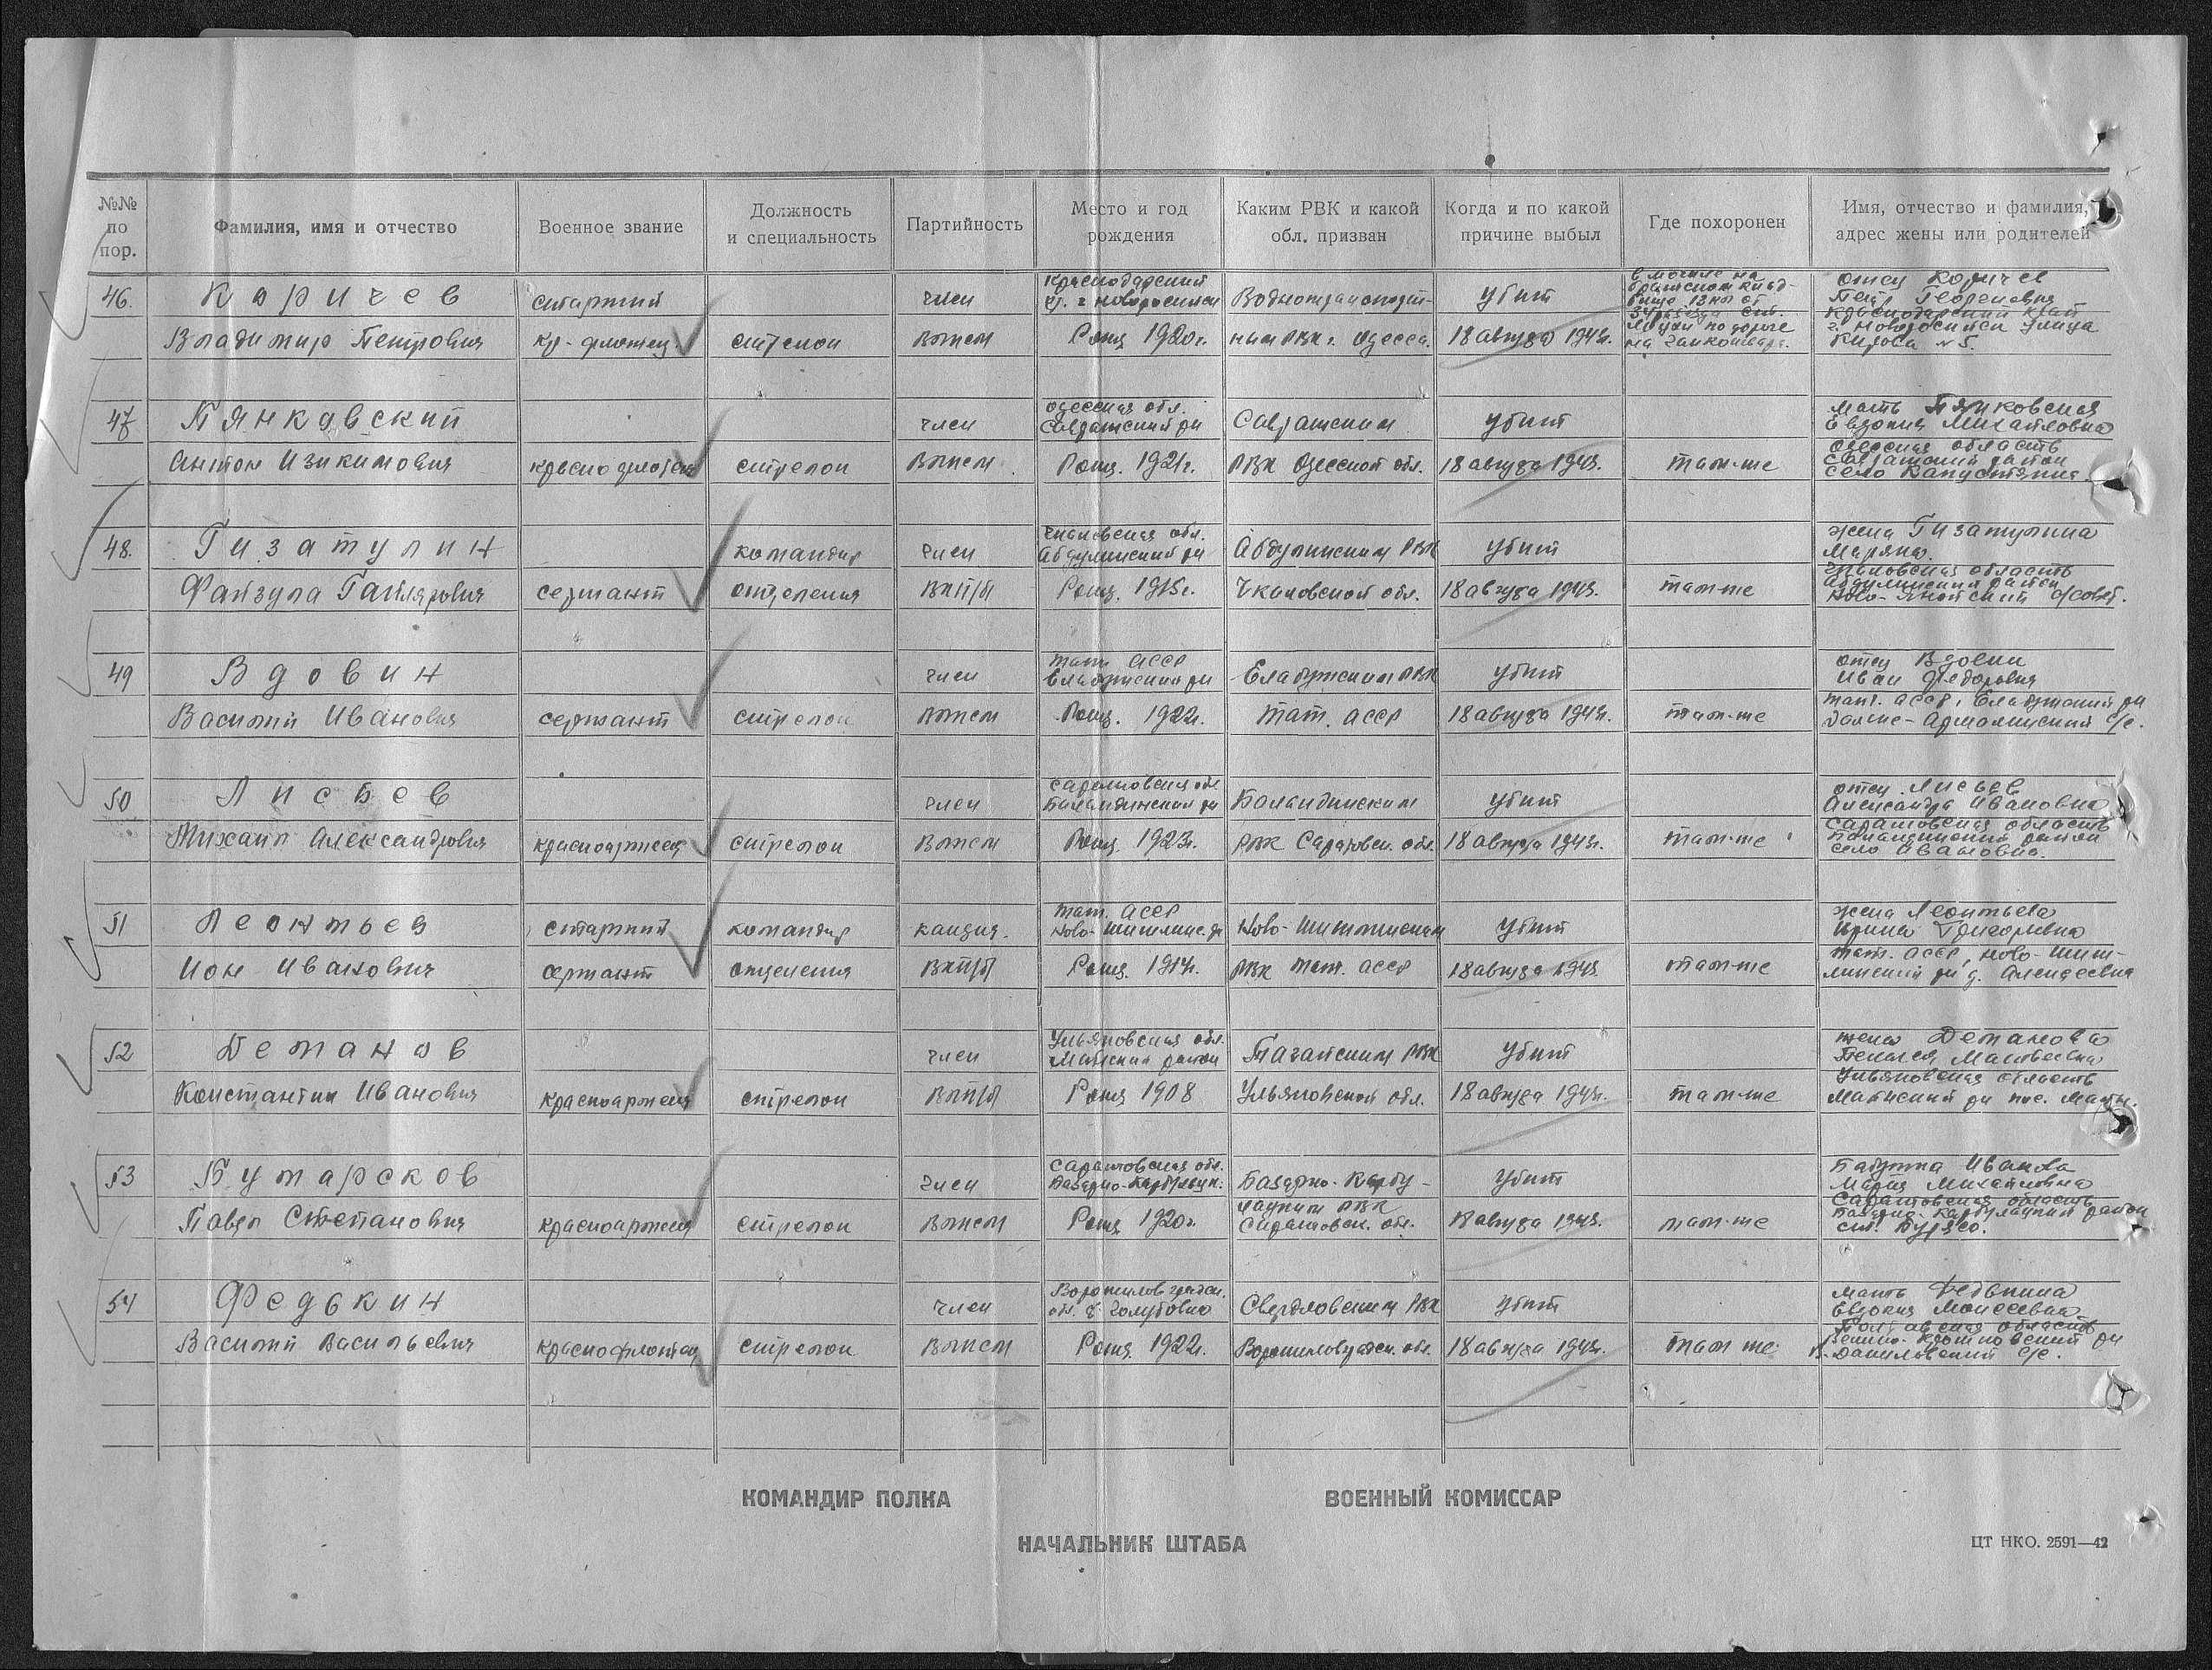 №№ по пор.
Фамилия, имя и отчество
Военное звание
Должность и специальность
Партийность
Место и год рождения
Каким РВК и какой обл. призван
Когда и по какой причине выбыл
Где похоронен
Имя, отчество и фамилия, адрес жены или родителей
46. Каричев старший член Краснодарский кр. г. Новоросийск убит отец Каричев
Владимир Петрович кр-флотец стрелок влксм Рожд 1920г. РВК г. Одесса. 18 августа 1943г. Краснодарский край г. Новоросийск улица Кирова №5.
47 Пянковский член одесская обл. Савранский рн Савранским убит мать Пянковская Евдокия Михайловна
Антон краснофлотец стрелок влксм Рожд. 1921г. РВК Одесской обл. 18 августа 1943г. там-же Одесская область Савранский район село
48. Гизатулин командир член Чкаловская обл. Абдулинский рн Абдулинским РВК убит жена Гизатулина
Файзула сержант отделения ВКП/б Рожд. 1915г. Чкаловской обл. 18 августа 1943г. там-же Чкаловская область Абдулинский район с/совет.
49 Вдовин член тат. АССР Елабужский рн Елабужским РВК убит отец Вдовин Иван Федорович
Василий Иванович сержант стрелок влксм Рожд. 1922г. тат. АССР 18 августа 1943г. там-же тат. АССР, Елабужский рн с/с.
50 Лисьев член Саратовская обл. Баландинский рн Баландинским убит отец Лисьев
Михаил Александрович красноармеец стрелок влксм Рожд. 1923г. РВК Саратовск. обл. 18 августа 1943г. там-же Саратовская область Баландинский район село Ивановка.
51 Леонтьев старший командир кандид. тат. АССР Ново-Шишминским убит жена Леонтьева Ирина Григорьевна
Ион Иванович сержант отделения ВКП/б Рожд. 1914г. РВК тат. АССР 18 августа 1943 там-же тат. АССР, Ново-Шишминский рн д.
52 Деманов член Ульяновская обл. район РВК убит жена Деманова Пелагея Матвеевна
Константин Иванович красноармеец стрелок ВКП/б Рожд 1908 Ульяновской обл. 18 августа 1943г. там-же Ульяновская область
53 Бутарсков член Саратовская обл. Базарно- Базарно-Карбу- убит Иванова Мария Михайловна
Павел Степанович красноармеец стрелок влксм Рожд 1920г. РВК Саратовск. обл. 18 августа 1943г. там-же Саратовская область район
54 Федькин член Ворошиловградск. обл. Свердловским РВК убит мать Федькина Евдокия Моисеевна
Василий Васильевич краснофлотец стрелок влксм Рожд. 1922г. Ворошиловградск. обл. 18 августа 1943г. там же Полтавская область рн с/с.
КОМАНДИР ПОЛКА
ВОЕННЫЙ КОМИССАР
НАЧАЛЬНИК ШТАБА
ЦТ НКО. 2591—42